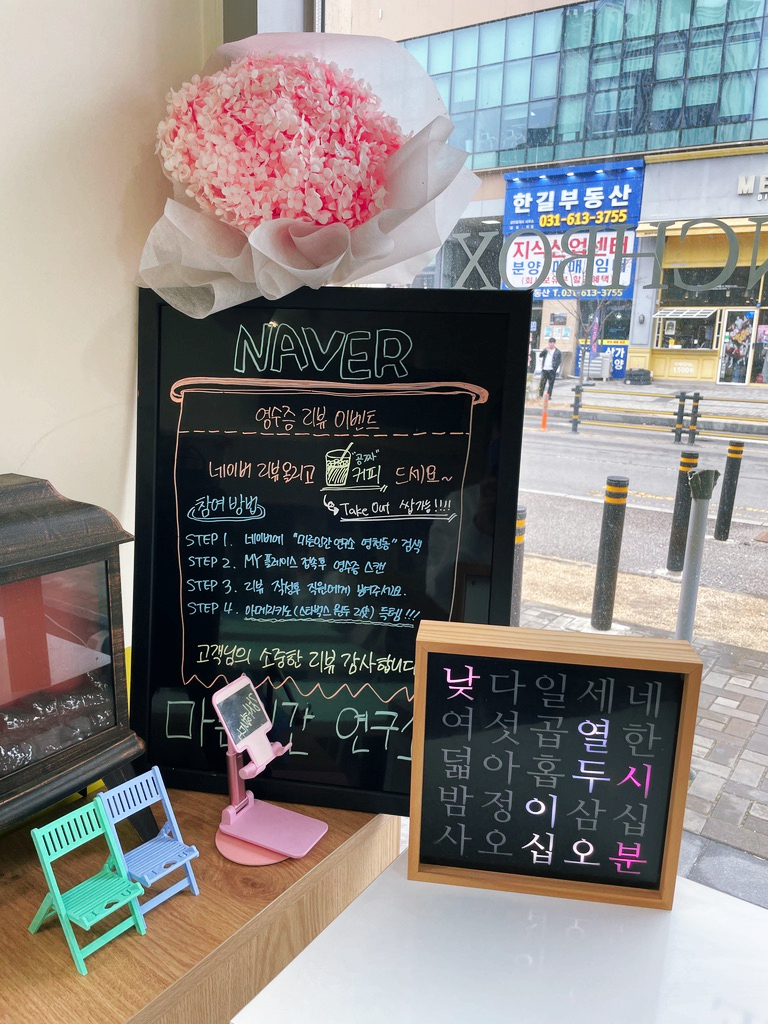 NAVER
영수증 리뷰 이벤트
네이버 리뷰올리고 "공짜" 커피 드세요~
Take Out 쌉가능!!!!
참여 방법
STEP 1. 네이버에 "마음인간 연구소 영천동" 검색
STEP 2. MY 플레이스 접속후 영수증 스캔
STEP 3. 리뷰 작성후 직원에게 보여주세요.
STEP 4. 아메리카노(스타벅스 원두 20샷) 득템!!!
고객님의 소중한 리뷰 감사합니다
연구소
낮다일세네
여섯곱열한
덟아홉두시
밤정이삼십
사오십오분
한길부동산
031-613-3755
지식산업센터
분양 매매 임대
동산 T.031-613-3755
상가